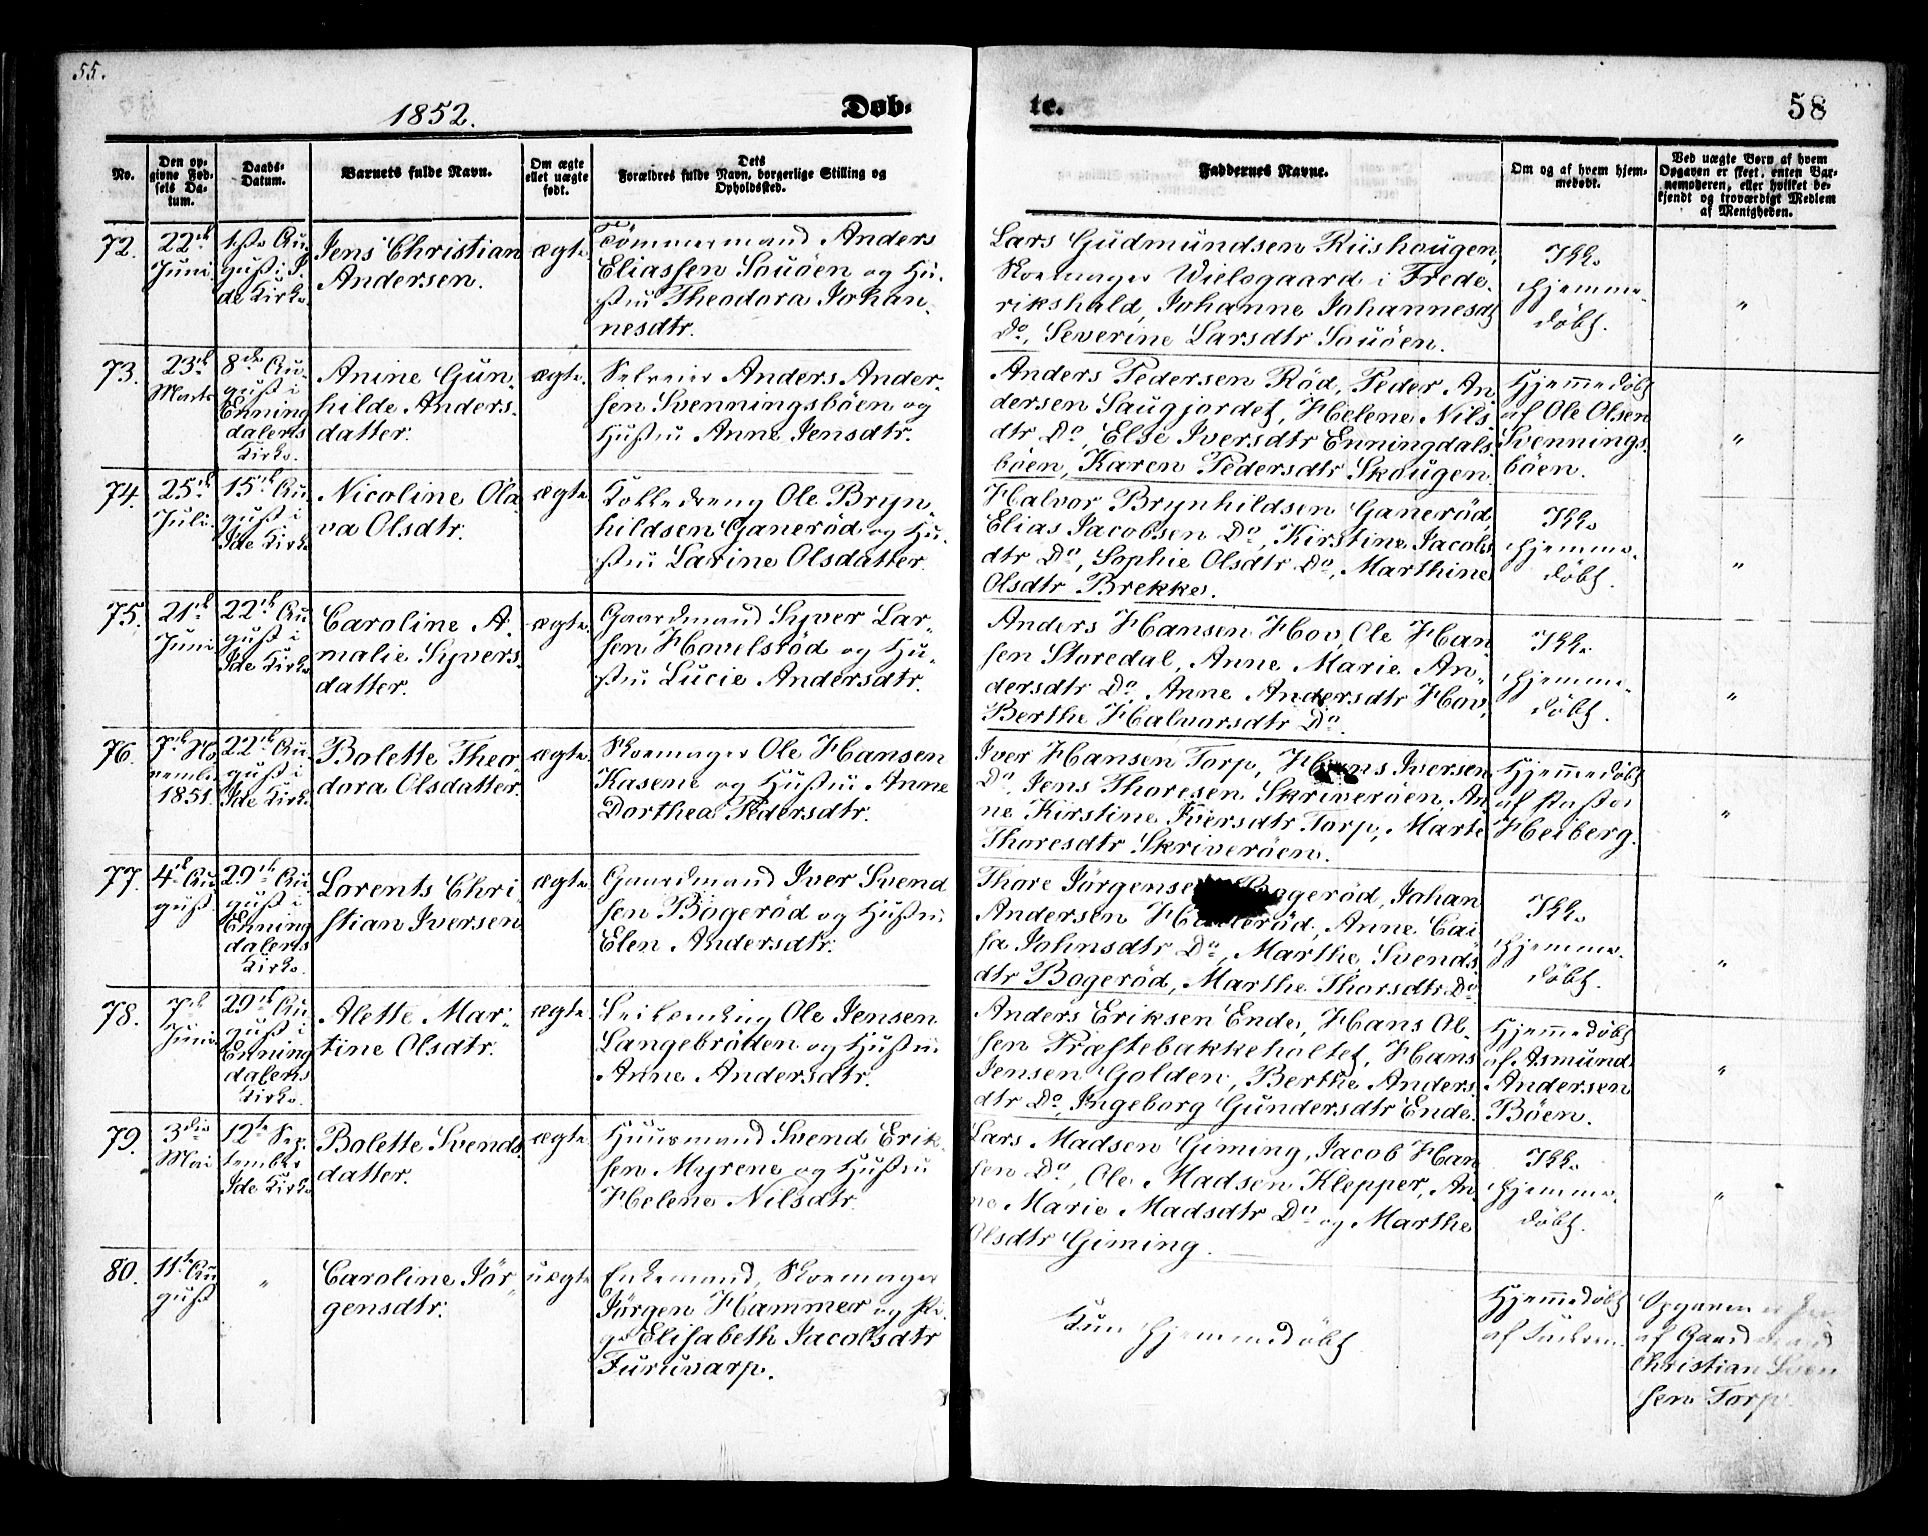 55.
1852.
Døb-
te.
58
No.
Den op-
givne Fød-
sels Da-
tum.
Daabs-
Datum.
Barnets fulde Navn.
Om ægte
eller uægte
født.
Dets
Forældres fulde Navn, borgerlige Stilling og
Opholdssted.
Faddernes Navne.
Om og af hvem hjem-
medøbt.
Ved uægte Børn af hvem
Opgaven er skeet, enten Bar-
nemoderen, eller hvilket be-
kjendt og troværdigt Medlem
af Menigheden.
72.
22de
Juni
1ste Au-
gust i I-
de Kirke
Jens Christian
Andersen.
ægte
Tömmermand Anders
Eliassen Sauöen og Hu-
stru Theodora Johan-
nesdtr.
Lars Gudmundsen Riishaugen,
Skomager Wielsgaard i Frede-
rikshald, Johanne Johannesdt
Do, Severine Larsdtr Sauöen.
Ikke
hjemme-
døbt.
"
73.
23de
Marts
8de Au-
gust i
Enning
dalens
Kirke.
Anine Gun-
hilde Anders-
datter.
ægte.
Selveier Anders Ander-
sen Svenningsböen og
Hustru Anne Jensdtr.
Anders Pedersen Röd, Peder An
dersen Saugjordet, Helene Nils-
dtr Do, Else Iversdtr Enningdals-
böen, Karen Pedersdtr Skaugen
Hjemmedøbt
af Ole Olsen
Svennings-
böen.
"
74.
25de
Juli.
15de Au
gust i
Ide Kirke
Nicoline Ola
va Olsdtr.
ægte.
Kokkedreng Ole Bryn-
hildsen Ganeröd og Hu-
stru Larine Olsdatter
Halvor Brynhildsen Ganeröd,
Elias Jacobsen Do, Kirstine Jacobs
dtr Do, Sophie Olsdtr Do, Marthine
Olsdtr Brekke.
Ikke
hjemme-
døbt.
"
75.
21de
Juni
22de Au
gust i
Ide Kirke
Caroline A-
malie Syvers-
datter.
ægte.
Gaardmand Syver Lar-
sen Hovelsröd og Hu-
stru Lucie Andersdtr.
Anders Hansen Hov, Ole Han
sen Staredal, Anne Marie An-
dersdtr Do, Anne Andersdtr Hov,
Berthe Halvorsdtr Do.
Ikke
hjemme-
døbt.
"
76.
7de No
vember
1851.
22de Au
gust i
Ide Kirke
Bolette Theo
dora Olsdatter.
ægte.
Skomager Ole Hansen
Kasene og Hustru Anne
Dorthea Pedersdtr.
Iver Hansen Torp, Hans Iversen
Do, Jens Thoresen Skriveröen, An
ne Kirstine Iversdtr Torp, Marte
Thoresdtr Skriveröen.
Hjemmedøbt
af Pastor
Heiberg.
"
77.
4de Au
gust.
29de Au
gust i
Enning
dalens
Kirke.
Lorents Chri
stian Iversen
ægte
Gaardmand Iver Svend
sen Bogeröd og Hustru
Elen Andersdtr.
Thore Jörgensen Bogeröd, Johan
Andersen Anne Cai
sa Johnsdtr Do, Marthe Svends
dtr Bogeröd, Marthe Thorsdtr Do
Ikke
hjemme-
døbt.
"
78.
7de
Juni
29de Au
gust i
Enning
dalens
Kirke.
Alette Mar-
tine Olsdtr.
ægte.
Leilending Ole Jensen
Langebråtten og Hustru
Anne Andersdtr.
Anders Eriksen Ende, Hans Ol-
sen Præstebakkeholtet, Hans
Jensen Golden, Berthe Anders-
dtr Do, Ingeborg Gundersdtr Ende.
Hjemmedøbt
af Asmund
Andersen
Böen.
"
79.
3die
Mai
12te Sep-
tember
Ide Kirke
Bolette Svends-
datter.
ægte.
Huusmand Svend Erik-
sen Myrene og Hustru
Helene Nilsdtr.
Lars Madsen Giming, Jacob Han
sen Do, Ole Madsen Klepper, An
ne Marie Madsdtr Do og Marthe
Olsdtr Giming.
Ikke
hjemme-
døbt.
"
80.
11te Au
gust
"
Caroline Jör-
gensdtr.
uægte
Enkemand, Skomager
Jörgen Hammer og Pi-
ge Elisabeth Jacobsdtr
Furuvarp.
Kun hjemmedøbt
Hjemmedøbt
af
Opgaven er
af Gaardmand
Christian Sven
sen Torp.